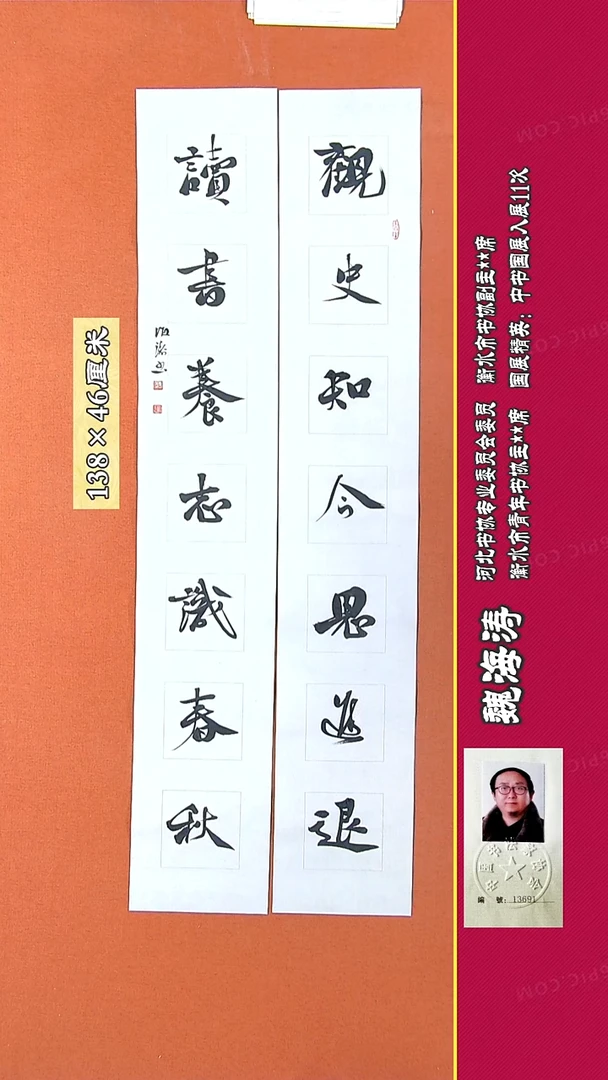 觀史知今思進退
讀書養志識春秋
138×46厘米
河北书协专业委员会委员 衡水市书协副主**席
衡水市青年书协主**席 国展精英：中书国展入展11次
魏海涛
编 號：13691